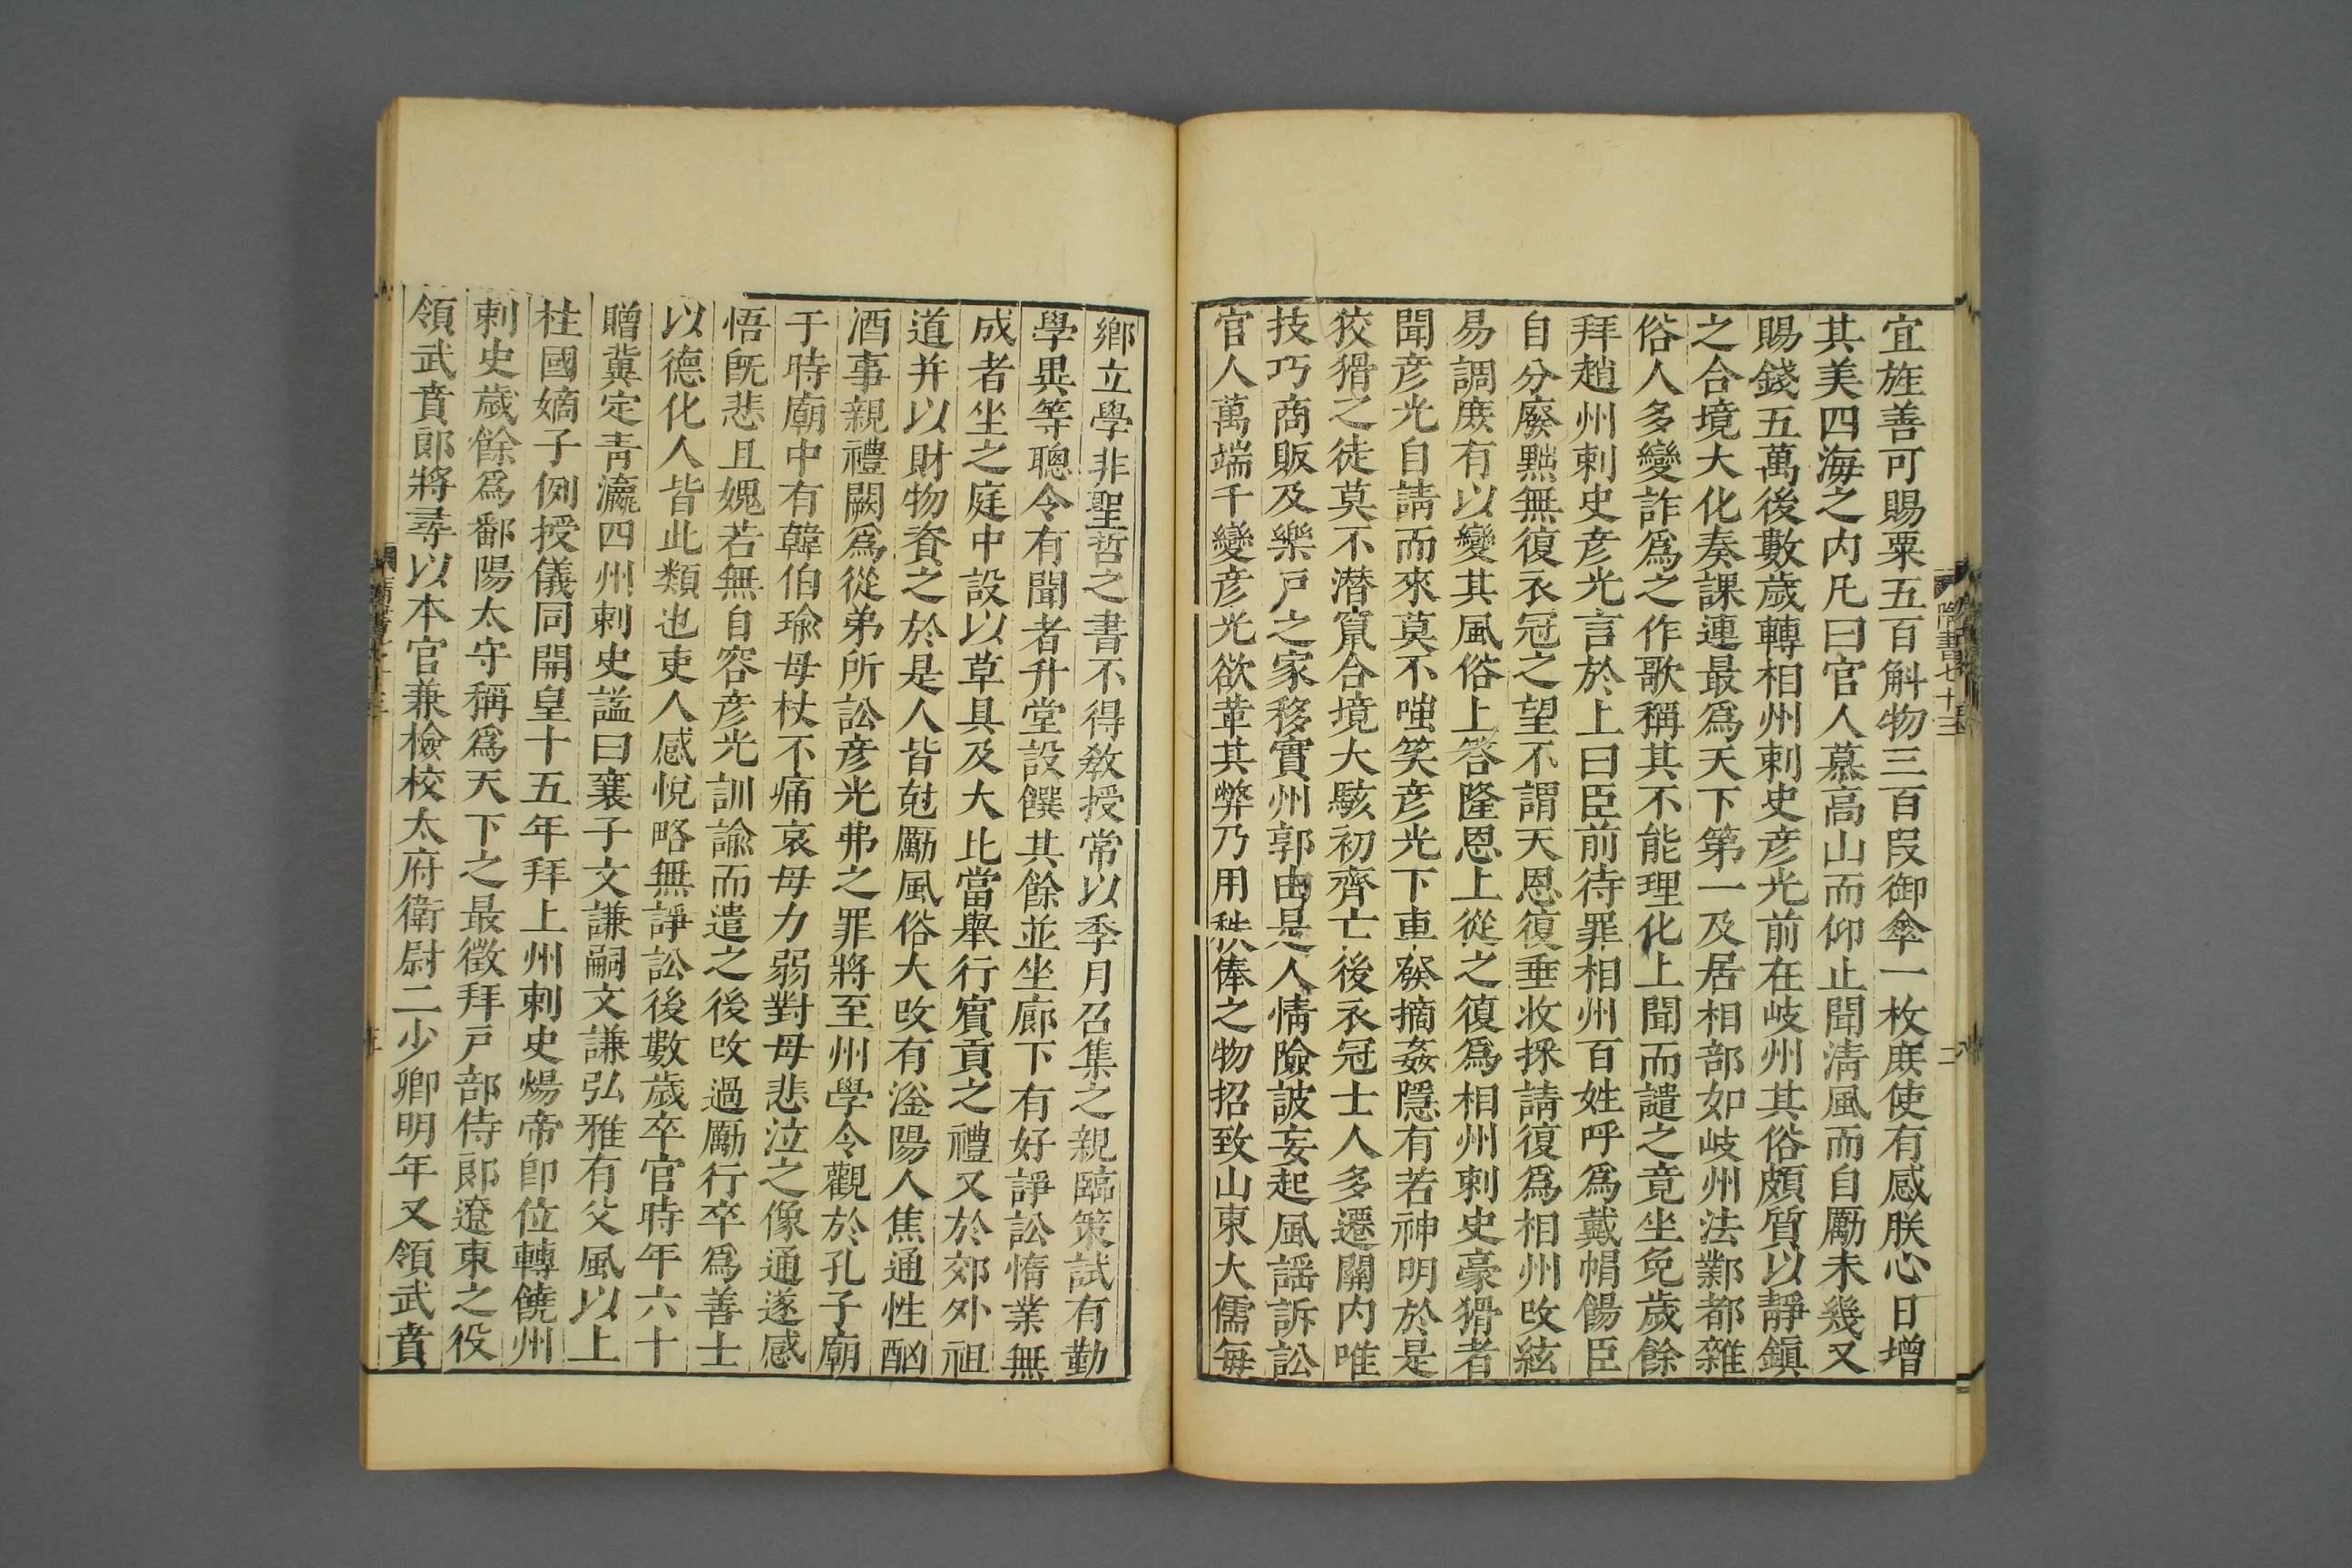 宜旌善可賜粟五百斛物三百段御傘一枚庶使有感朕心日增
其美四海之内凡曰官人慕高山而仰止聞清風而自勵未幾又
賜錢五萬後數歲轉相州刺史彦光前在岐州其俗頗質以靜鎮
之合境大化奏課連最爲天下第一及居相部如岐州法鄴都雜
俗人多變詐爲之作歌稱其不能理化上聞而譴之竟坐免歲餘
拜趙州刺史彦光言於上曰臣前待罪相州百姓呼爲戴帽餳臣
自分廢黜無復衣冠之望不謂天恩復垂收採請復爲相州改絃
易調庶有以變其風俗上答隆恩上從之復爲相州刺史豪猾者
聞彦光自請而來莫不嗤笑彦光下車發摘姦隱有若神明於是
狡猾之徒莫不潜竄合境大駭初齊亡後衣冠士人多遷關内唯
技巧商販及樂戸之家移實州郭由是人情險詖妄起風謡訴訟
官人萬端千變彦光欲革其弊乃用秩俸之物招致山東大儒毎
隋書七十三
二
鄉立學非聖哲之書不得教授常以季月召集之親臨策試有勤
學異等聰令有聞者升堂設饌其餘並坐廊下有好諍訟惰業無
成者坐之庭中設以草具及大比當舉行賓貢之禮又於郊外祖
道并以財物資之於是人皆尅勵風俗大改有滏陽人焦通性酗
酒事親禮闕爲從弟所訟彦光弗之罪將至州學令觀於孔子廟
于時廟中有韓伯瑜母杖不痛哀母力弱對母悲泣之像通遂感
悟旣悲且媿若無自容彦光訓諭而遣之後改過勵行卒爲善士
以德化人皆此類也吏人感悅略無諍訟後數歲卒官時年六十
贈冀定青瀛四州刺史謚曰襄子文謙嗣文謙弘雅有父風以上
柱國嫡子例授儀同開皇十五年拜上州刺史煬帝卽位轉饒州
刺史歲餘爲鄱陽太守稱爲天下之最徵拜戸部侍郎遼東之役
領武賁郎將尋以本官兼檢校太府衛尉二少卿明年又領武賁